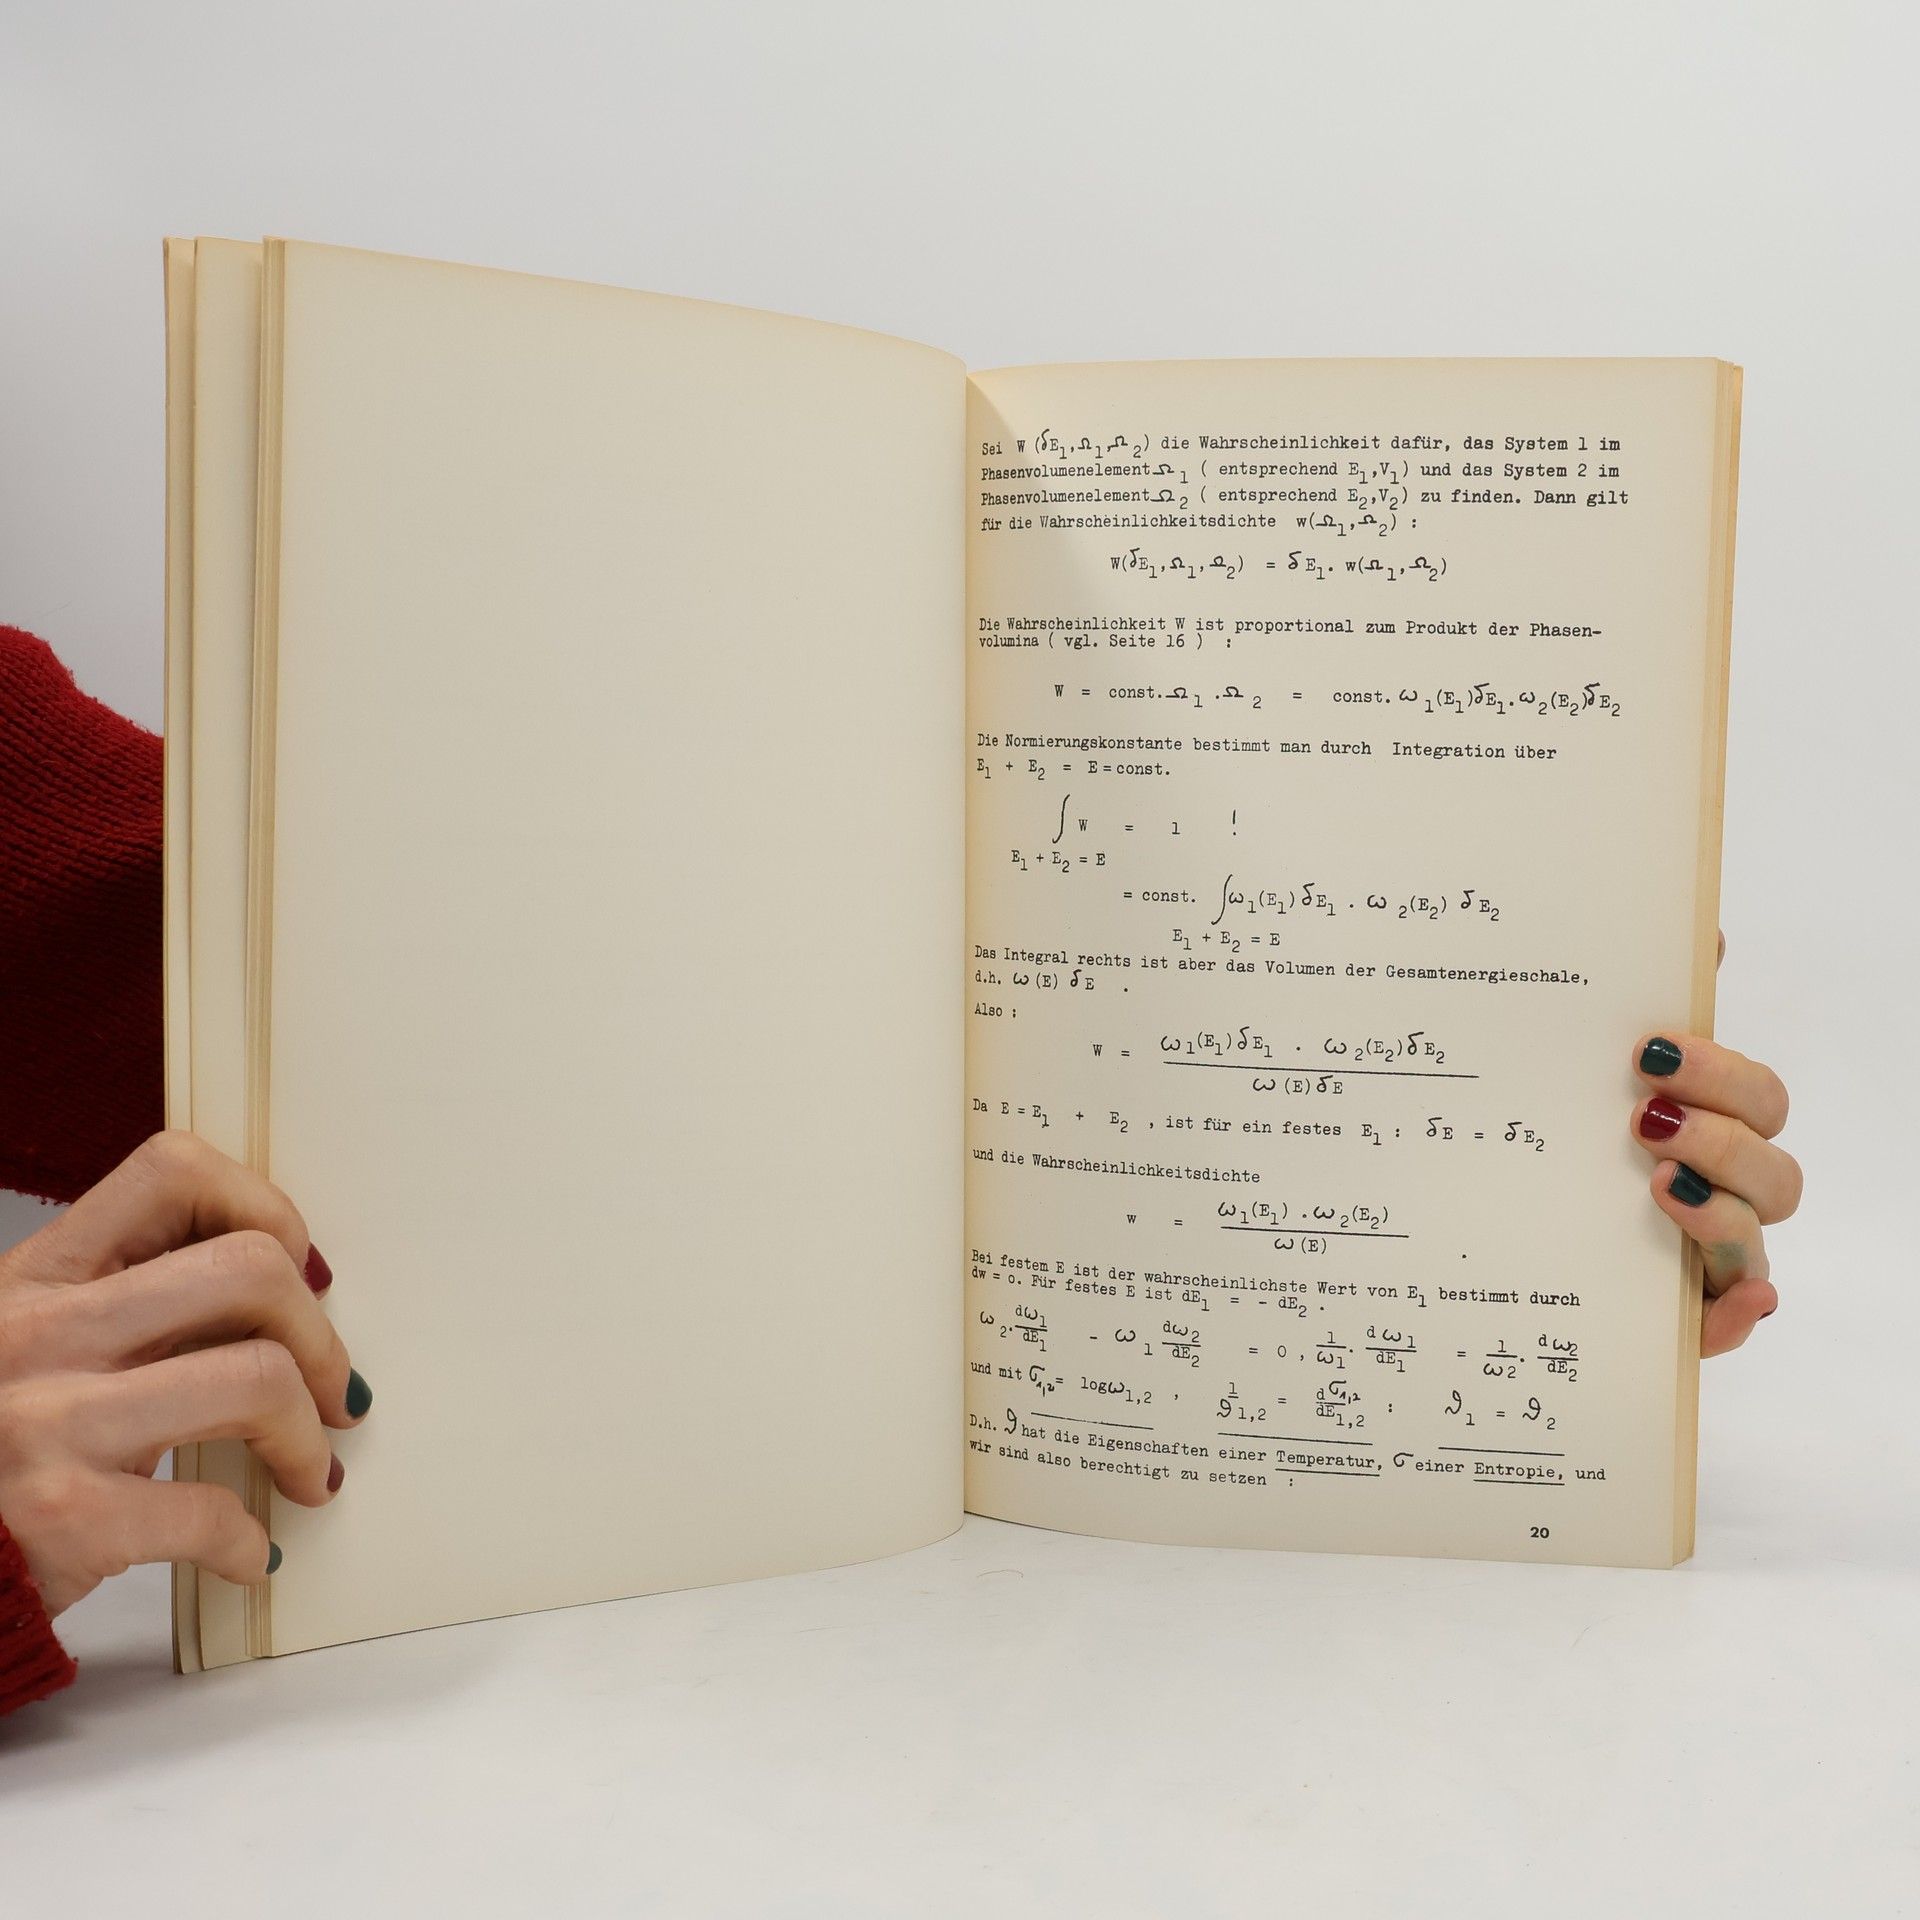 Sei W (δE₁,Ω₁,Ω₂) die Wahrscheinlichkeit dafür, das System 1 im
Phasenvolumenelement Ω₁ ( entsprechend E₁,V₁) und das System 2 im
Phasenvolumenelement Ω₂ ( entsprechend E₂,V₂) zu finden. Dann gilt
für die Wahrscheinlichkeitsdichte w(Ω₁,Ω₂) :
W(δE₁,Ω₁,Ω₂) = δE₁. w(Ω₁,Ω₂)
Die Wahrscheinlichkeit W ist proportional zum Produkt der Phasen-
volumina ( vgl. Seite 16 ) :
W = const.Ω₁ .Ω₂ = const. ω₁(E₁)δE₁.ω₂(E₂)δE₂
Die Normierungskonstante bestimmt man durch Integration über
E₁ + E₂ = E = const.
∫ W = 1 !
E₁ + E₂ = E
= const. ∫ω₁(E₁)δE₁ . ω₂(E₂) δE₂
E₁ + E₂ = E
Das Integral rechts ist aber das Volumen der Gesamtenergieschale,
d.h. ω(E) δE .
Also :
W = ω₁(E₁)δE₁ . ω₂(E₂)δE₂
ω(E)δE
Da E = E₁ + E₂ , ist für ein festes E₁ : δE = δE₂
und die Wahrscheinlichkeitsdichte
w = ω₁(E₁) .ω₂(E₂)
ω(E) .
Bei festem E ist der wahrscheinlichste Wert von E₁ bestimmt durch
dw = o. Für festes E ist dE₁ = - dE₂ .
ω₂. dω₁/dE₁ - ω₁ dω₂/dE₂ = 0 , 1/ω₁. dω₁/dE₁ = 1/ω2. dω2/dE₂
und mit σ₁,₂ = logω₁,₂ , 1/ϑ₁,₂ = dσ₁,₂/dE₁,₂ : ϑ₁ = ϑ₂
D.h. ϑ hat die Eigenschaften einer Temperatur, σ einer Entropie, und
wir sind also berechtigt zu setzen :
20